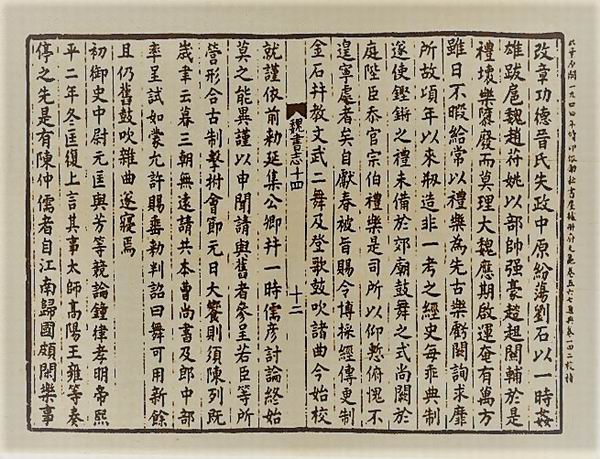 冊府元龜卷五六七通典卷一四二校補
改章功德晉氏失政中原紛蕩劉石以一時姦
雄跋扈魏趙苻姚以部帥强豪趑趄關輔於是
禮壞樂隳廢而莫理大魏應期啟運奄有萬方
雖日不暇給常以禮樂為先古樂虧闕詢求靡
所故頃年以來剏造非一考之經史每乖典制
遂使鏗鏘之禮未備於郊廟鼓舞之式尚闕於
庭陛臣忝官宗伯禮樂是司所以仰慙俯愧不
遑寧處者矣自獻春被旨賜令博採經傳更制
金石并教文武二舞及登歌鼓吹諸曲今始校
魏書志十四 十二
就謹依前勅延集公卿并一時儒彥討論終始
莫之能異謹以申聞請與舊者參呈若臣等所
營形合古制擊拊會節元日大饗則須陳列既
歲聿云暮三朝無遠請共本曹尚書及郎中部
率呈試如蒙允許賜垂勅判詔曰舞可用新餘
且仍舊鼓吹雜曲遂寢焉
初御史中尉元匡與芳等競論鐘律孝明帝熙
平二年冬匡復上言其事太師高陽王雍等奏
停之先是有陳仲儒者自江南歸國頗閑樂事